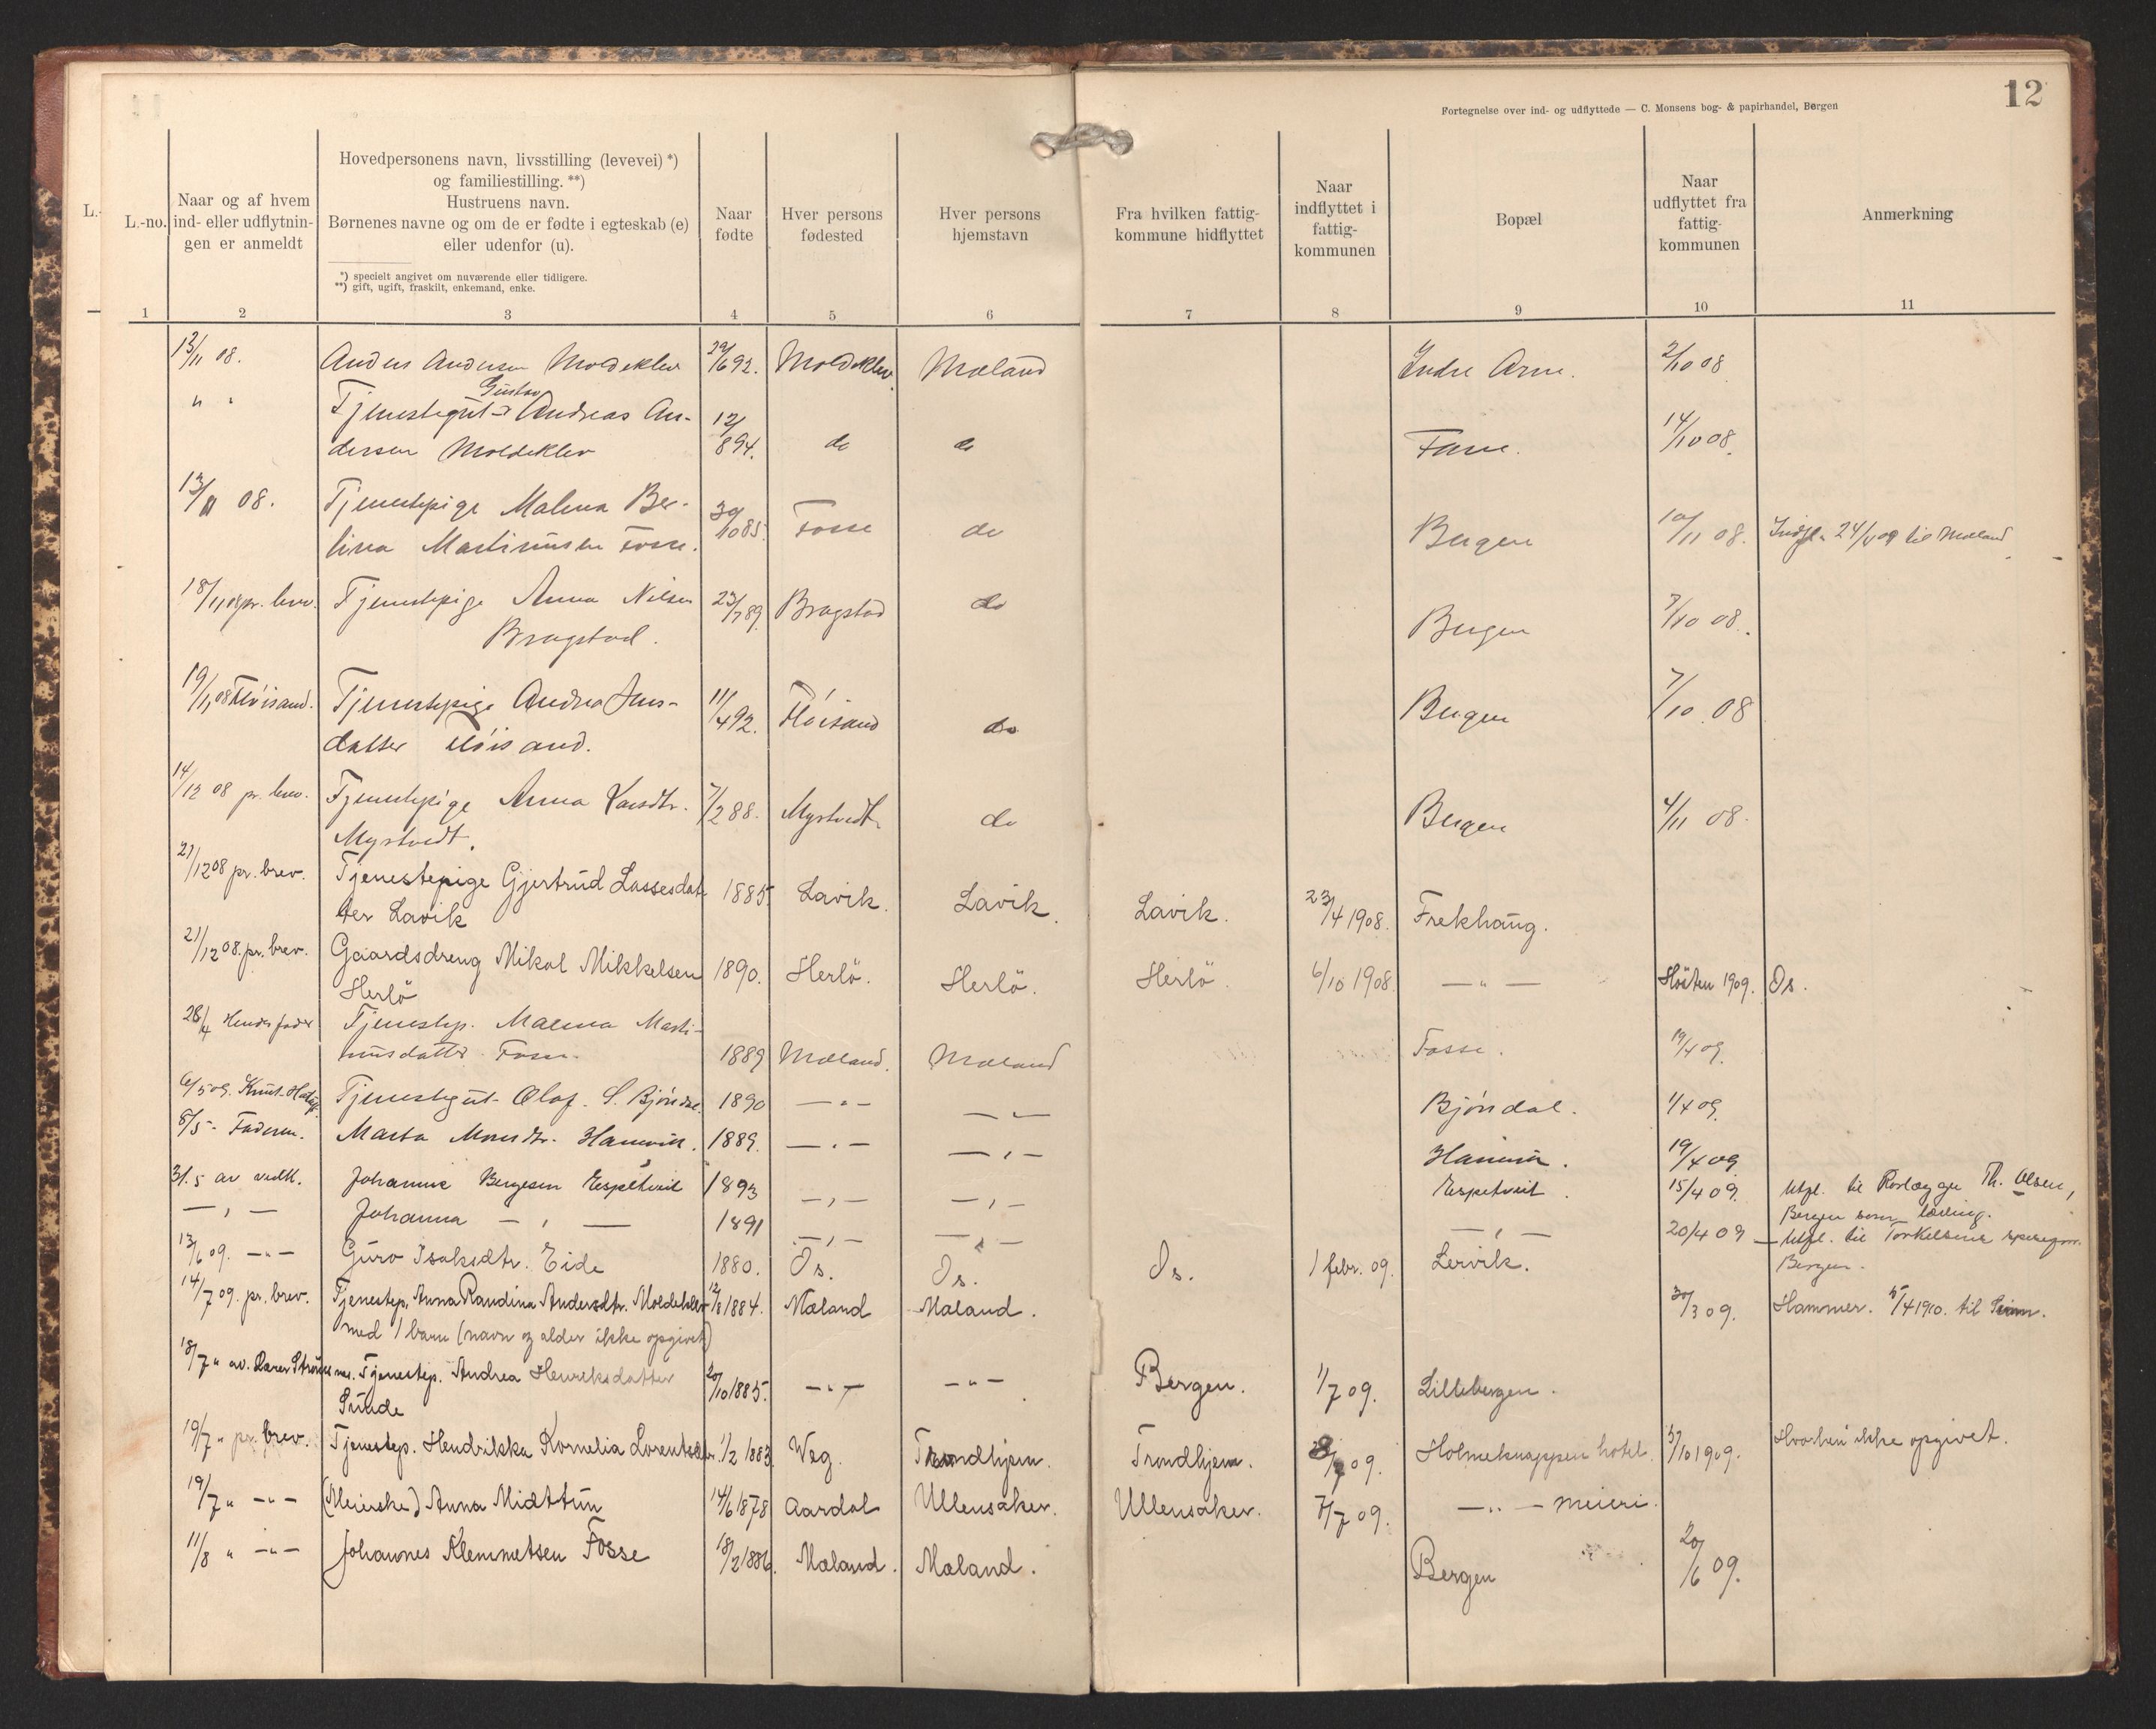 12
Fortegnelse over ind- og udflyttede — C. Monsens bog- & papirhandel, Bergen
L.-
L.-no.
Naar og af hvem
ind- eller udflytnin-
gen er anmeldt
Hovedpersonens navn, livsstilling (levevei) *)
og familiestilling. **)
Hustruens navn.
Børnenes navne og om de er fødte i egteskab (e)
eller udenfor (u).
*) specielt angivet om nuværende eller tidligere.
**) gift, ugift, fraskilt, enkemand, enke.
Naar
fødte
Hver persons
fødested
Hver persons
hjemstavn
Fra hvilken fattig-
kommune hidflyttet
Naar
indflyttet i
fattig-
kommunen
Bopæl
Naar
udflyttet fra
fattig-
kommunen
Anmerkning
1 2 3 4 5 6 7 8 9 10 11
13/11 08. Anders Andersen Moldeklev 29/6 92. Moldeklev Mæland Indre Arne. 2/10 08
" " Tjenestegut Gustav Andreas An-
dersen Moldeklev 12/8 94. do do Fane. 14/10 08.
13/11 08. Tjenestepige Malena Ber-
lina Martinusen Fosse. 30/10 85. Fosse do Bergen 10/11 08. Indfl. 24/4 09 til Mæland
18/11 08 pr. brev. Tjenestepige Anna Nilsen
Bragstad. 23/7 89. Bragstad do Bergen 7/10 08.
19/11 08 Fløisand. Tjenestepige Andrea Jens-
datter Fløisand. 11/4 92. Fløisand do Bergen 7/10 08
14/12 08 pr. brev. Tjenestepige Anna Larsdtr.
Myrtvedt. 7/2 88. Myrtvedt do Bergen 4/11 08.
21/12 08 pr. brev. Tjenestepige Gjertrud Lassesdat-
ter Lavik 1885 Lavik. Lavik. Lavik. 23/4 1908. Frekhaug.
21/12 08. pr. brev. Gaardsdreng Mikal Mikkelsen
Herlö 1890. Herlö. Herlö. Herlö. 6/10 1908. — " — Hösten 1909. Os.
28/4 Hendes fader Tjenestep. Malena Marti-
nusdatter Fosse. 1889 Mæland. Mæland Fosse. 19/4 09.
6/5 09. Knut Tjenestegut Olaf. S. Bjöndal. 1890 — " — — " — Bjöndal. 1/4 09.
8/5 - Faderen. Marta Monsdtr. 1889. — " — — " — 19/4 09.
31.5 av vedk. Johannes Bergesen Espetveit 1893 — " — — " — Espetveit. 15/4 09. Utfl. til Rørlægger Th. Olsen,
Bergen som lærling.
— " — Johanna — " — 1891 — " — — " — — " — 20/4 09 — Utfl. til Torkelsens
Bergen.
13/6 09. — " — Guro Isaksdtr. Eide 1880. Os. Os. Os. 1 febr. 09. Lervik.
14/7 09. pr. brev. Tjenestep. Anna Randina Andersdtr. Moldeklev 12/8 1884. Mæland Mæland. 30/3 09. Hammer. 5/4 1910. til
med 1 barn (navn og alder ikke opgivet)
18/7 " av. Lærer Strömsnes. Tjenestep. Andrea Henriksdatter
Sunde 20/10 1885. — " — — " — Bergen. 1/7 09. Lillebergen.
19/7 " pr. brev. Tjenestep. Hendrikka Kornelia Lorentsdtr. 1/2 1883 Weg. Trondhjem. Trondhjem. 09. Holmeknappen hotel 3/10 1909. Hvorhen ikke opgivet.
19/7 " — " — (Meierske) Anna Midttun 14/6 1878 Aardal Ullensaker. Ullensaker. 7/7 09. — " — meieri.
11/8 " — " — Johannes Klemmetsen Fosse 18/2 1886. Mæland. Mæland. Bergen 20/6 09.